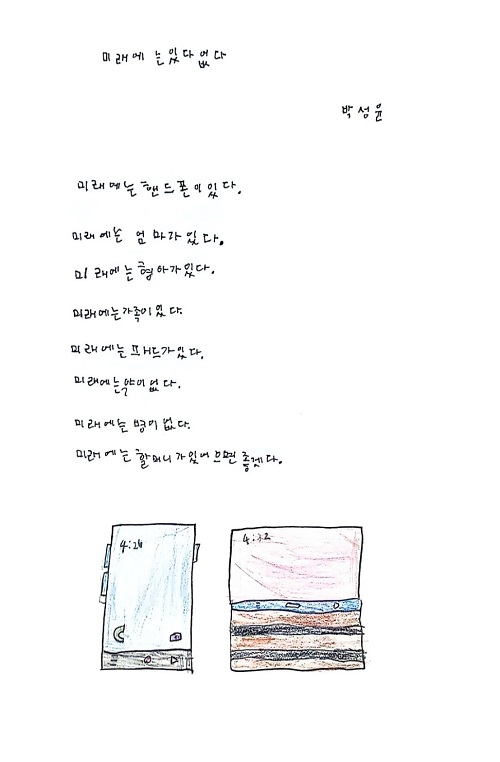 미래에는 있다 없다
박성윤
미래에는 핸드폰이 있다.
미래에는 엄마가 있다.
미래에는 형아가 있다.
미래에는 가족이 있다.
미래에는 패드가 있다.
미래에는 약이 없다.
미래에는 병이 없다.
미래에는 할머니가 있어으면 좋겠다.
4:26
4:32